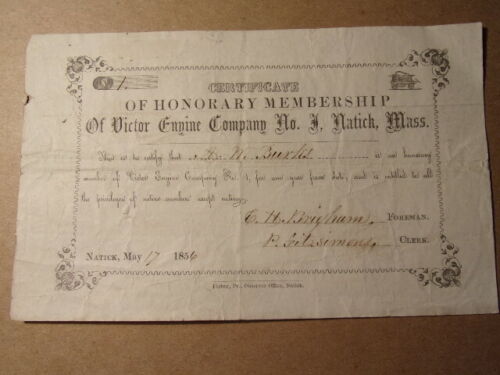 $ 1.
CERTIFICATE
OF HONORARY MEMBERSHIP
Of Victor Engine Company No. 1, Natick, Mass.
This is to certify that W. Burks is an honorary
member of Victor Engine Company No. 1, for one year from date, and is entitled to all
the privileges of active members except voting.
C. H. Brigham, FOREMAN.
P. Fitzsimons, CLERK.
NATICK, May 17 1856
Pr., Observer Office, Natick.